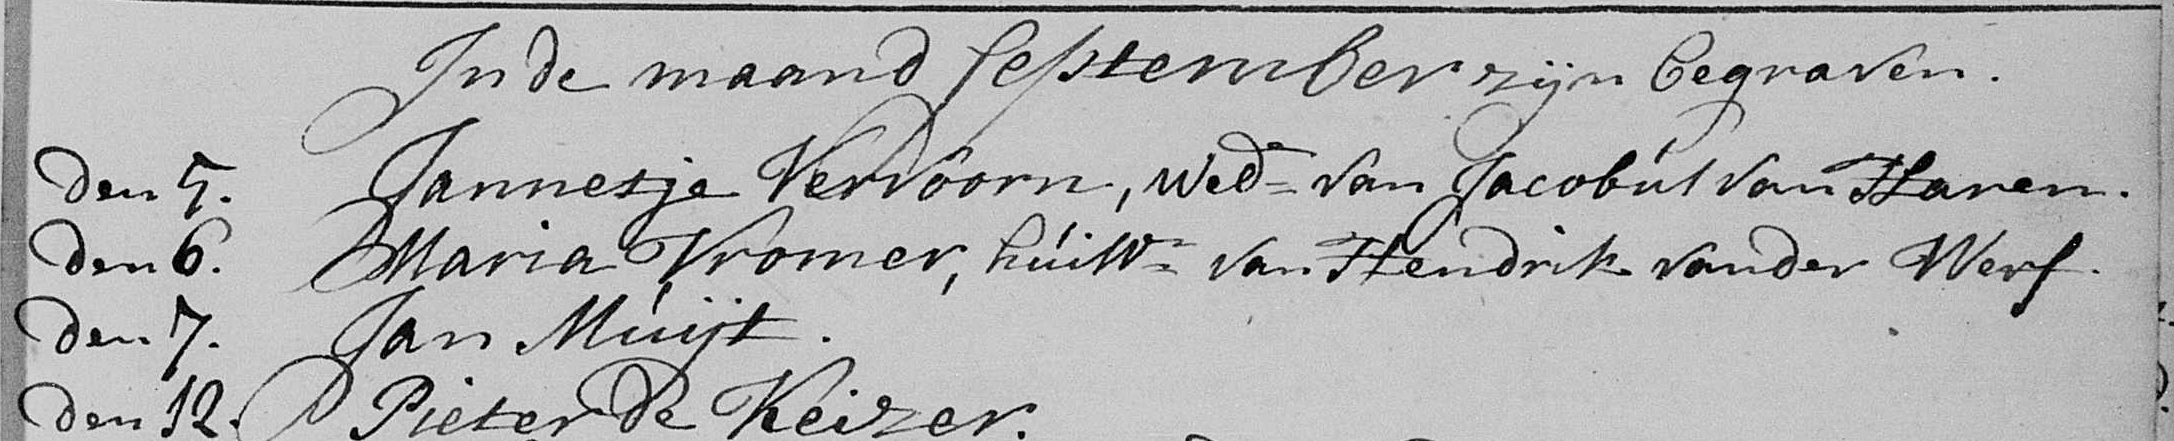 In de maand September zijn begraven.
den 5. Jannetje Vervoorn, wed= van Jacobus van Haren.
den 6. Maria Vromer, húisv= van Hendrik vander Werf.
den 7. Jan Múijt.
den 12. Pieter de Keizer.